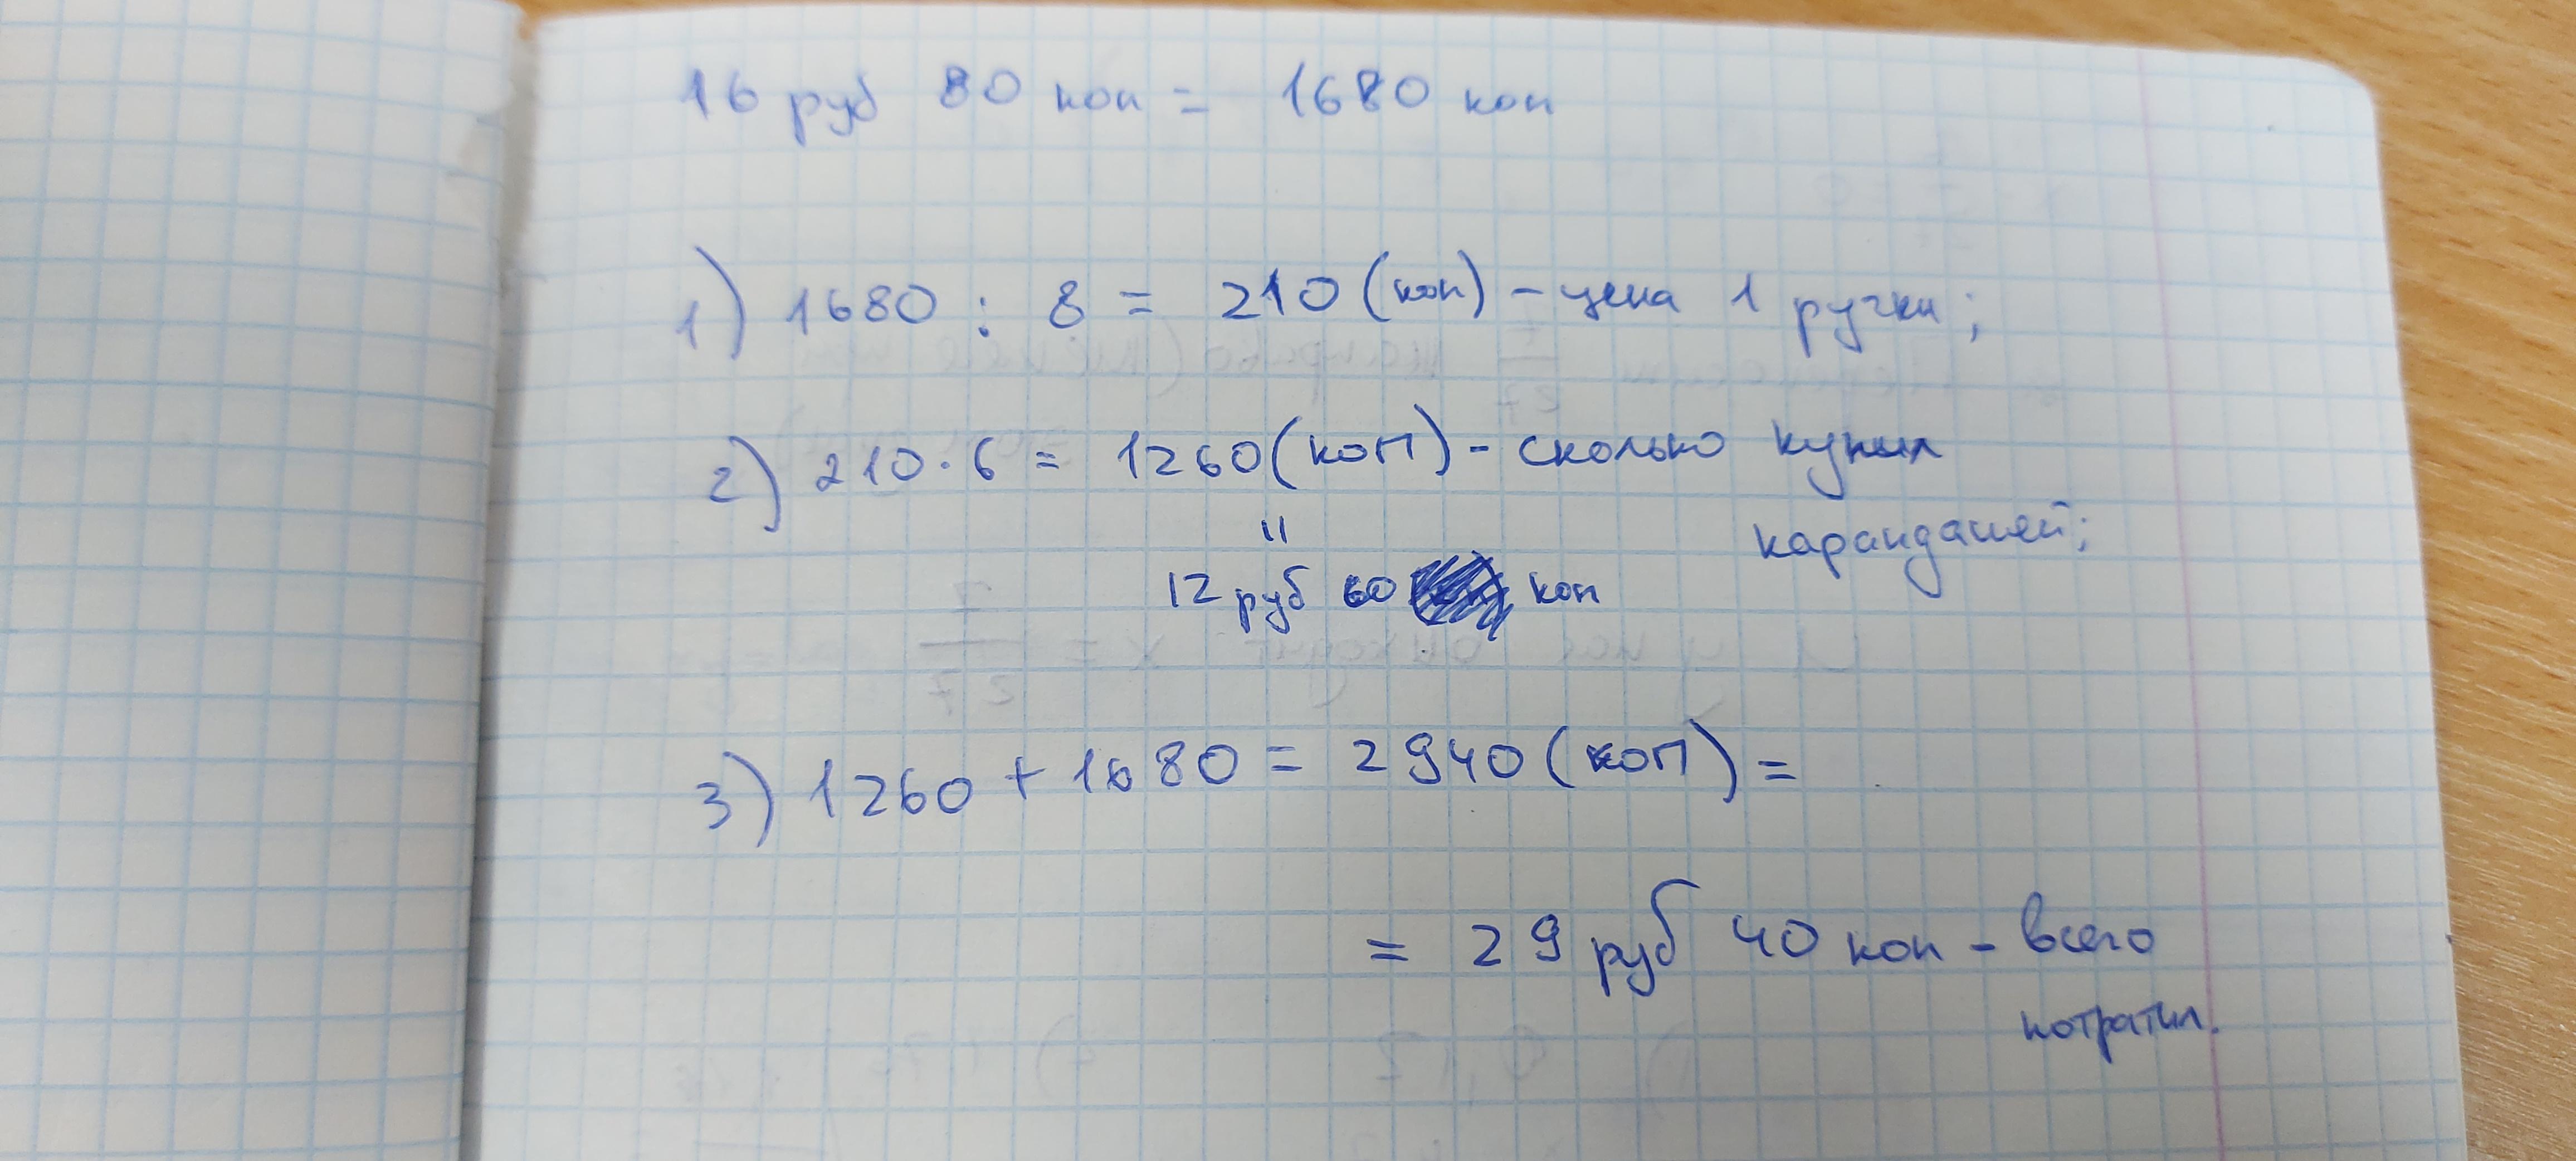 16 руб 80 коп = 1680 коп
1) 1680 : 8 = 210 (коп) - цена 1 ручки;
2) 210 · 6 = 1260 (коп) - сколько купил
карандашей;
=
12 руб 60 коп
3) 1260 + 1680 = 2940 (коп) =
= 29 руб 40 коп - всего
потратил.